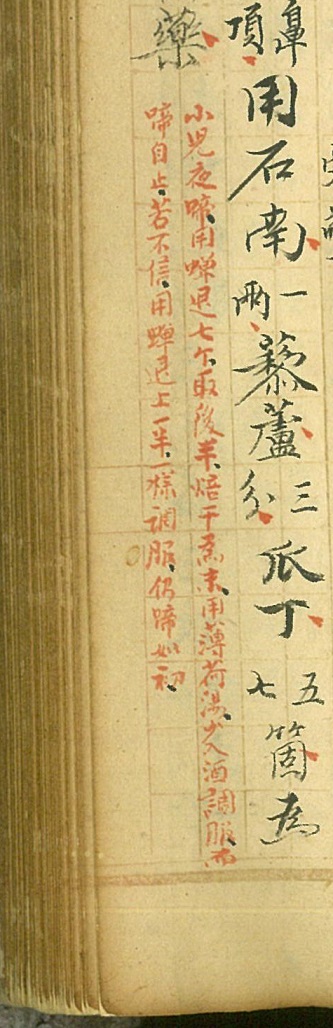 鼻項用石南一兩藜蘆三分瓜丁五七箇為
小児夜啼用蟬退七个取後半焙干為末用薄荷湯少入酒調服而
啼自止若不信用蟬退上一半一樣調服仍啼如初
藥